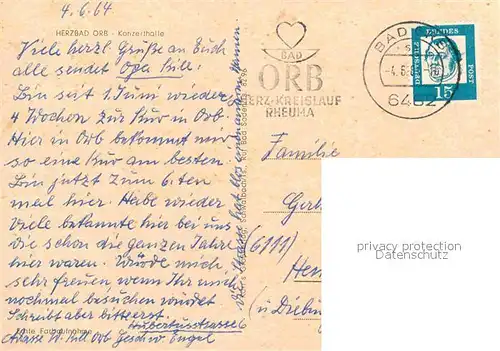 4.6.64
HERZBAD ORB - Konzerthalle
Viele herzl. Grüße an Euch
alle sendet Opa Sill:
Bin seit 1. Juni wieder
4 Wochen zur Kur in Orb.
Hier in Orb bekommt mir
so eine Kur am besten.
Bin jetzt zum 6. ten
mal hier. Habe wieder
viele bekannte hier bei uns
die schon die ganzen Jahre
hier waren. Würde mich
sehr freuen, wenn Ihr mich
nochmal besuchen würdet
Schreibt aber bitte erst.
Echte Farbaufnahme
Hubertusstrasse 6
Adresse W. Sill Orb Geschw. Engel
BAD
ORB
HERZ-KREISLAUF
RHEUMA
BAD ORB
6482
DEUTSCHE BUNDESPOST
15
Familie
Gerh
(6111)
privacy protection
Datenschutz